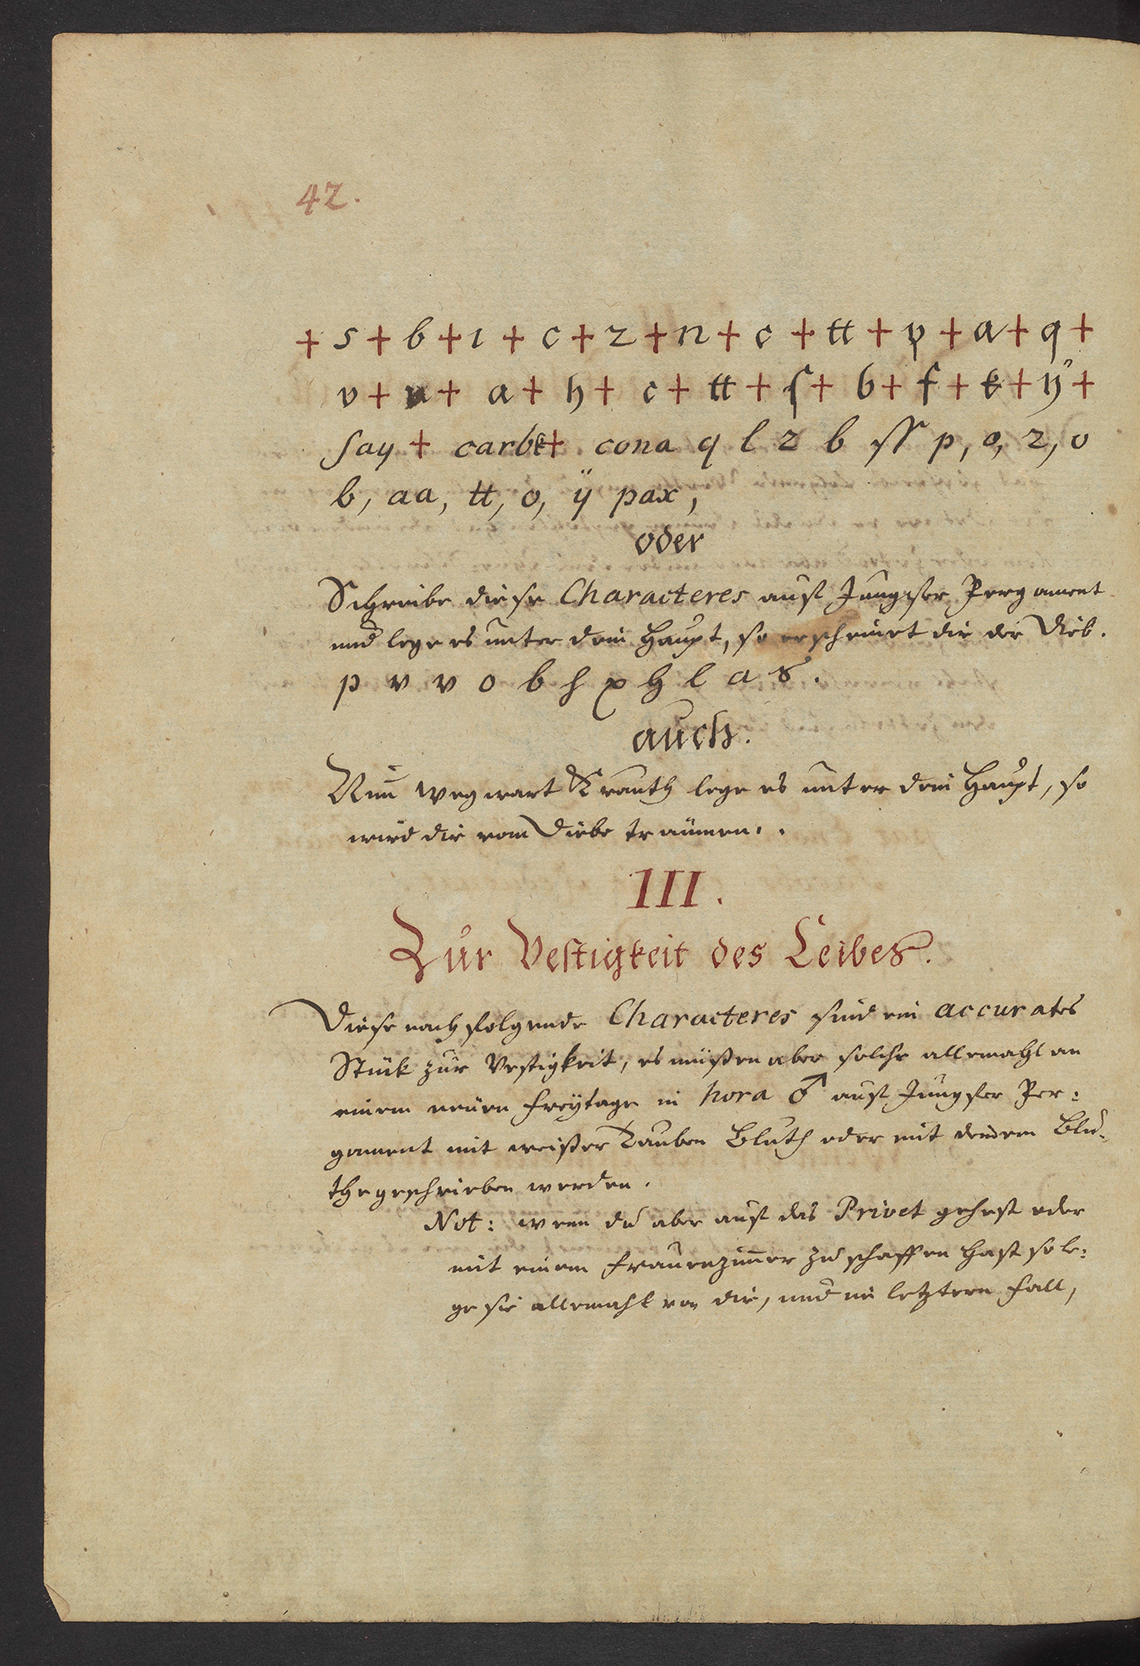 42.
+ s + b + i + c + z + n + c + tt + p + a + q +
v + n + a + h + c + tt + ſ + b + f + k + ÿ +
ſay + carbe + cona q l z b ſſ p, o, z, o
b, aa, tt, o, ÿ pax,
oder
Schreibe dieſe Characteres auff Jungfer Pergament
und lege es unter dein Haupt, ſo erſcheinet dir der Dieb.
p v v o b h x h l a s.
auch.
Nim̅ Wegwart Krauth lege es unter dein Haupt, ſo
wird dir vom Diebe träumen.
III.
Zur Veſtigkeit des Leibes.
Dieſe nachfolgende Characteres ſind ein accurates
Stück zur Veſtigkeit, es müßen aber ſolche allemahl an
einem neuen Freÿtage in hora ♂ auff Jungfer Per:
gament mit weißer Tauben Bluth oder mit deinem Blu-
the geſchrieben werden.
Not: wenn du aber auff das Privet geheſt oder
mit einem Frauenzim̅er zu ſchaffen haſt ſo le:
ge ſie allemahl von dir, und im letztern Fall,